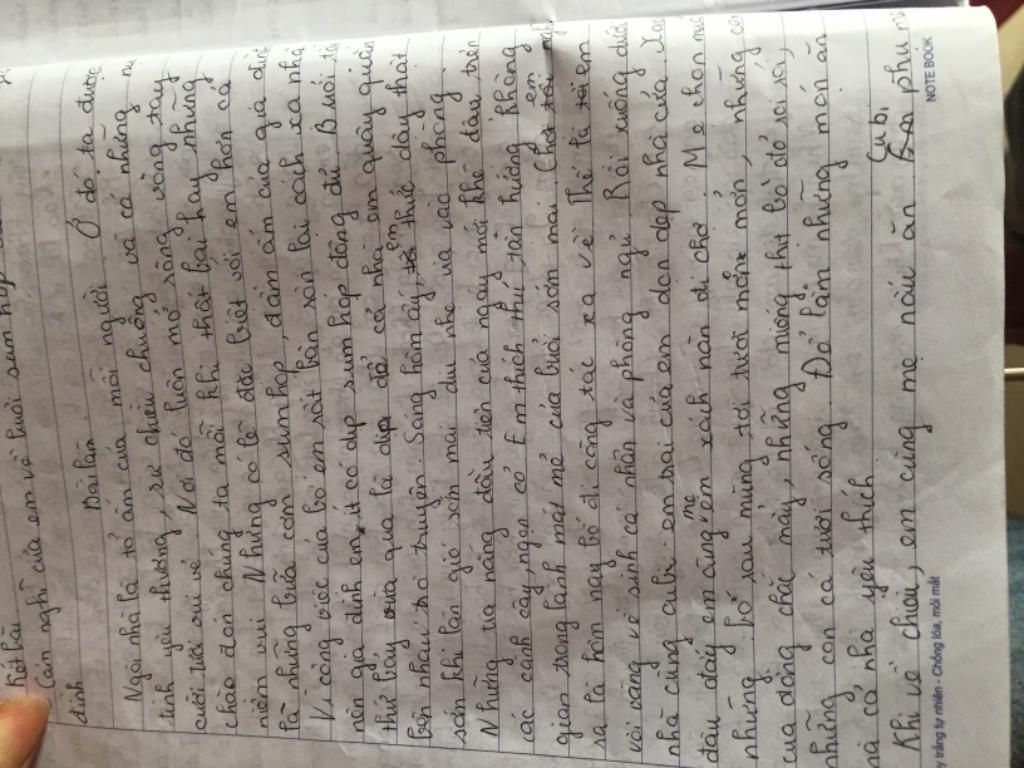 hối hả
Cảm nghĩ của em về buổi sum họp
đình
Bài làm
Ngôi nhà là tổ ấm của mỗi người Ở đó ta được
tình yêu thương, sự chiều chuộng và cả những
cười tươi vui vẻ Nơi đó luôn mở rộng vòng tay
chào đón chúng ta mỗi khi thất bại hay những
niềm vui Nhưng có lẽ đặc biệt với em hơn cả
là những bữa cơm sum họp, đầm ấm của gia đình
Vì công việc của bố em rất bận rộn lại cách xa nhà
nên gia đình em ít có dịp sum họp đông đủ Buổi
thứ bảy vừa qua là dịp để cả nhà em quây quần
bên nhau trò truyện Sáng hôm ấy em thức dậy thật
sớm khi làn gió sớm mai dịu nhẹ ùa vào phòng.
Những tia nắng đầu tiên của ngày mới khẽ đậu trên
các cành cây ngọn cỏ Em thích thú tận hưởng không
gian trong lành mát mẻ của buổi sớm mai. Chợt tôi em
ra là hôm nay bố đi công tác xa về Thế là tôi em
vội vàng vệ sinh cá nhân và phòng ngủ Rồi xuống dưới
nhà cùng cu bi em trai của em dọn dẹp nhà cửa.
đâu đấy em cùng mẹ xách nàn đi chợ. Mẹ chọn
những bó rau muống tơi tươi mới mơn mởn, những
của động chắc mẩy, những miếng thịt bò đỏ roi rói,
những con cá tươi sống Đó là những món ăn
mà cả nhà yêu thích
Khi về chạy, em cùng mẹ nấu ăn Cu bi phụ
y trắng tự nhiên - Chống lóa, mỏi mắt
NOTE BOOK